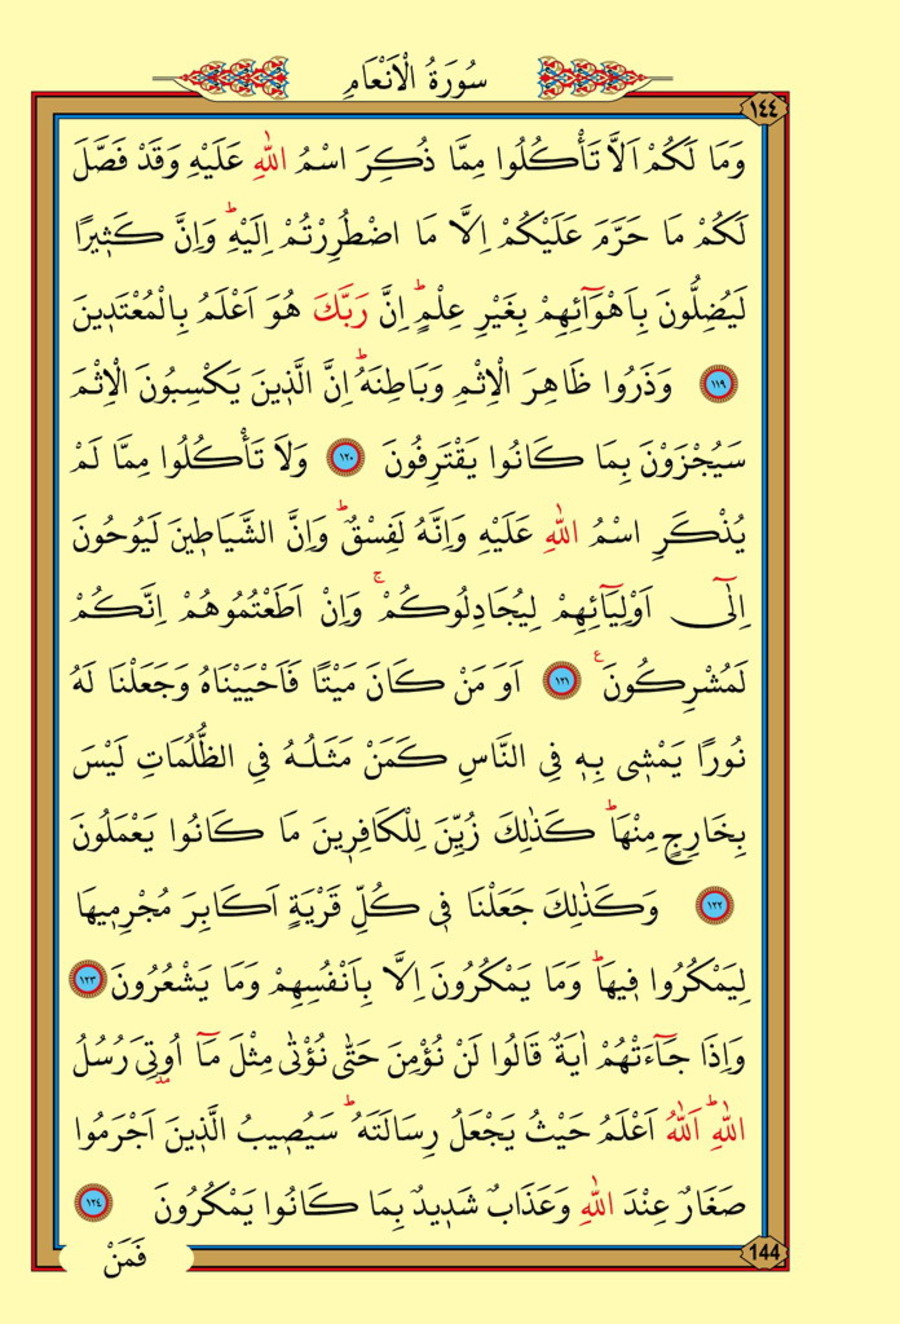 سُورَةُ الْاَنْعَامِ
١٤٤
وَمَا لَكُمْ اَلَّا تَأْكُلُوا مِمَّا ذُكِرَ اسْمُ اللّٰهِ عَلَيْهِ وَقَدْ فَصَّلَ
لَكُمْ مَا حَرَّمَ عَلَيْكُمْ اِلَّا مَا اضْطُرِرْتُمْ اِلَيْهِۜ وَاِنَّ كَث۪يرًا
لَيُضِلُّونَ بِاَهْوَٓائِهِمْ بِغَيْرِ عِلْمٍۜ اِنَّ رَبَّكَ هُوَ اَعْلَمُ بِالْمُعْتَد۪ينَ
١١٩ وَذَرُوا ظَاهِرَ الْاِثْمِ وَبَاطِنَهُۜ اِنَّ الَّذ۪ينَ يَكْسِبُونَ الْاِثْمَ
سَيُجْزَوْنَ بِمَا كَانُوا يَقْتَرِفُونَ ١٢٠ وَلَا تَأْكُلُوا مِمَّا لَمْ
يُذْكَرِ اسْمُ اللّٰهِ عَلَيْهِ وَاِنَّهُ لَفِسْقٌۜ وَاِنَّ الشَّيَاط۪ينَ لَيُوحُونَ
اِلٰٓى اَوْلِيَٓائِهِمْ لِيُجَادِلُوكُمْۚ وَاِنْ اَطَعْتُمُوهُمْ اِنَّكُمْ
لَمُشْرِكُونَ ع ١٢١ اَوَ مَنْ كَانَ مَيْتًا فَاَحْيَيْنَاهُ وَجَعَلْنَا لَهُ
نُورًا يَمْش۪ي بِه۪ فِي النَّاسِ كَمَنْ مَثَلُهُ فِي الظُّلُمَاتِ لَيْسَ
بِخَارِجٍ مِنْهَاۜ كَذٰلِكَ زُيِّنَ لِلْكَافِر۪ينَ مَا كَانُوا يَعْمَلُونَ
١٢٢ وَكَذٰلِكَ جَعَلْنَا ف۪ي كُلِّ قَرْيَةٍ اَكَابِرَ مُجْرِم۪يهَا
لِيَمْكُرُوا ف۪يهَاۜ وَمَا يَمْكُرُونَ اِلَّا بِاَنْفُسِهِمْ وَمَا يَشْعُرُونَ ١٢٣
وَاِذَا جَٓاءَتْهُمْ اٰيَةٌ قَالُوا لَنْ نُؤْمِنَ حَتّٰى نُؤْتٰى مِثْلَ مَٓا اُو۫تِيَ رُسُلُ
اللّٰهِۜ اَللّٰهُ اَعْلَمُ حَيْثُ يَجْعَلُ رِسَالَتَهُۜ سَيُص۪يبُ الَّذ۪ينَ اَجْرَمُوا
صَغَارٌ عِنْدَ اللّٰهِ وَعَذَابٌ شَد۪يدٌ بِمَا كَانُوا يَمْكُرُونَ ١٢٤
144
فَمَنْ